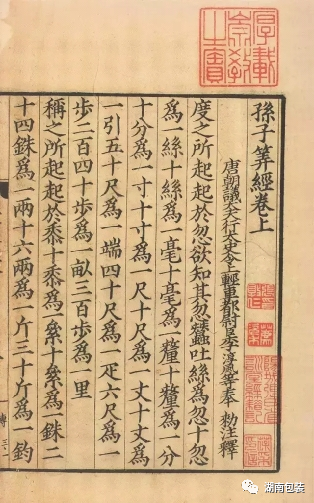 孫子筭經卷上
唐朝議大夫行太史令上輕車都尉臣李淳風等奉 勑注釋
度之所起起於忽欲知其忽蠶吐絲爲忽十忽
爲一絲十絲爲一毫十毫爲一釐十釐爲一分
十分爲一寸十寸爲一尺十尺爲一丈十丈爲
一引五十尺爲一端四十尺爲一疋六尺爲一
步二百四十步爲一畝三百步爲一里
稱之所起起於黍十黍爲一絫十絫爲一銖二
十四銖爲一兩十六兩爲一斤三十斤爲一鈞
湖南包装